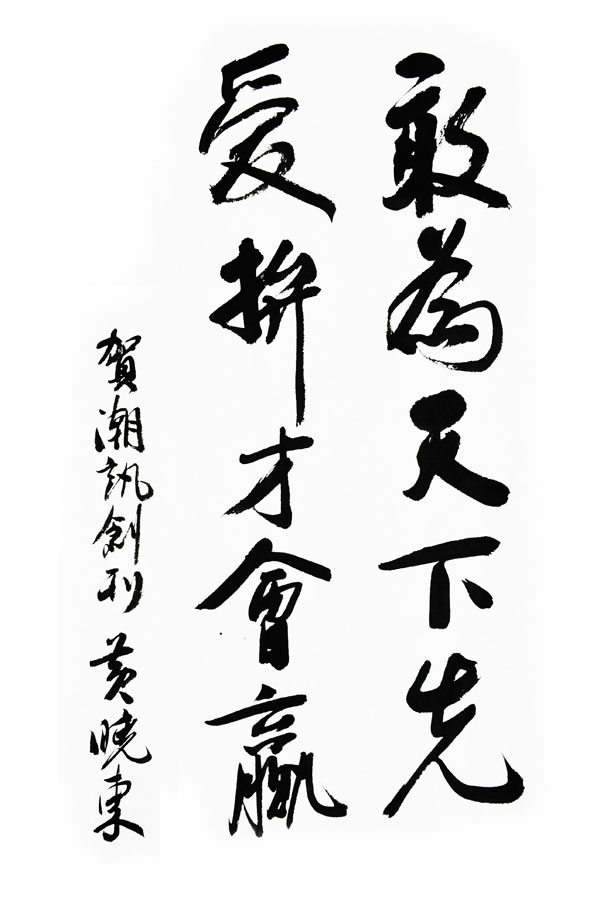 敢為天下先
愛拚才會贏
賀潮訊創刊 黃曉東